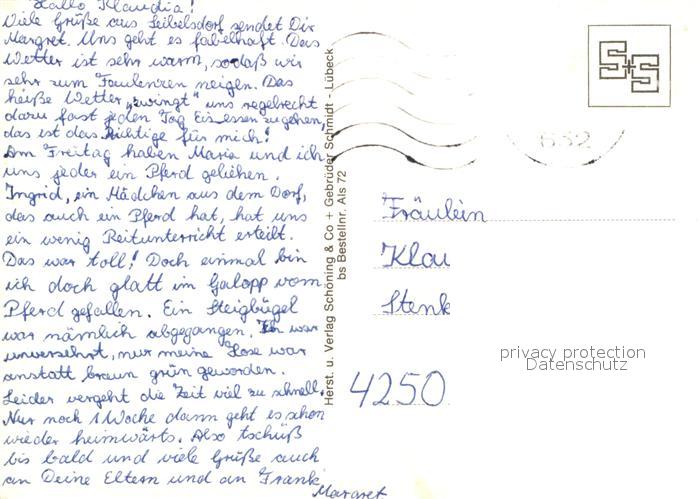 Hallo Klaudia!
Viele Grüße aus Leibelsdorf sendet Dir
Margret. Uns geht es fabelhaft. Das
Wetter ist sehr warm, sodaß wir
sehr zum Faulenzen neigen. Das
heiße Wetter „zwingt" uns regelrecht
dazu fast jeden Tag Eis essen zu gehen,
das ist das Richtige für mich!
Am Freitag haben Maria und ich
uns jeder ein Pferd geliehen.
Ingrid, ein Mädchen aus dem Dorf,
das auch ein Pferd hat, hat uns
ein wenig Reitunterricht erteilt.
Das war toll! Doch einmal bin
ich doch glatt im Galopp vom
Pferd gefallen. Ein Steigbügel
war nämlich abgegangen. Ich war
unversehrt, nur meine Hose war
anstatt braun grün geworden.
Leider vergeht die Zeit viel zu schnell.
Nur noch 1 Woche dann geht es schon
wieder heimwärts. Also tschüß
bis bald und viele Grüße auch
an Deine Eltern und an Frank
Margret
Herst. u. Verlag Schöning & Co + Gebrüder Schmidt - Lübeck
bs Bestellnr. Als 72
S+S
6.52
Fräulein
Klau
Stenk
4250
privacy protection
Datenschutz